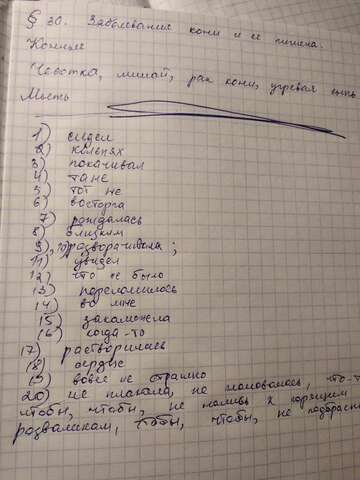 § 30. Заболевания кожи и ее гигиена.
Кожные
Чесотка, лишай, рак кожи, угревая сыпь
Мыть
1) сидел
2) коленях
3) покачивал
4) та не
5) тот не
6) восторга
7) рождалась
8) близким
9), 10) разворачивала;
11) увидел
12) что не было
13) переломилось
14) во мне
15) закаможела
16) когда-то
17) растворилась
18) сердце
19) вовсе не страшно
20) не плакала, не жаловалась, что-т
чтобы, чтобы, не к горящим
развалинам, чтобы, не